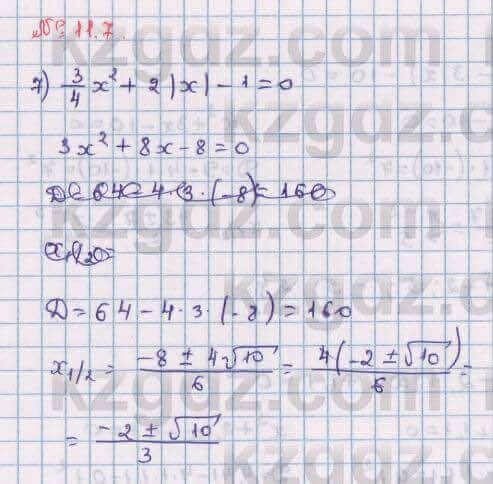 № 11.7.
7) 3/4 x² + 2|x| - 1 = 0
3x² + 8x - 8 = 0
D = 64 - 4·3·(-8) = 160
D = 64 - 4·3·(-8) = 160
x₁/₂ = (-8 ± 4√10)/6 = 4(-2 ± √10)/6 =
= (-2 ± √10)/3
kzgdz.com